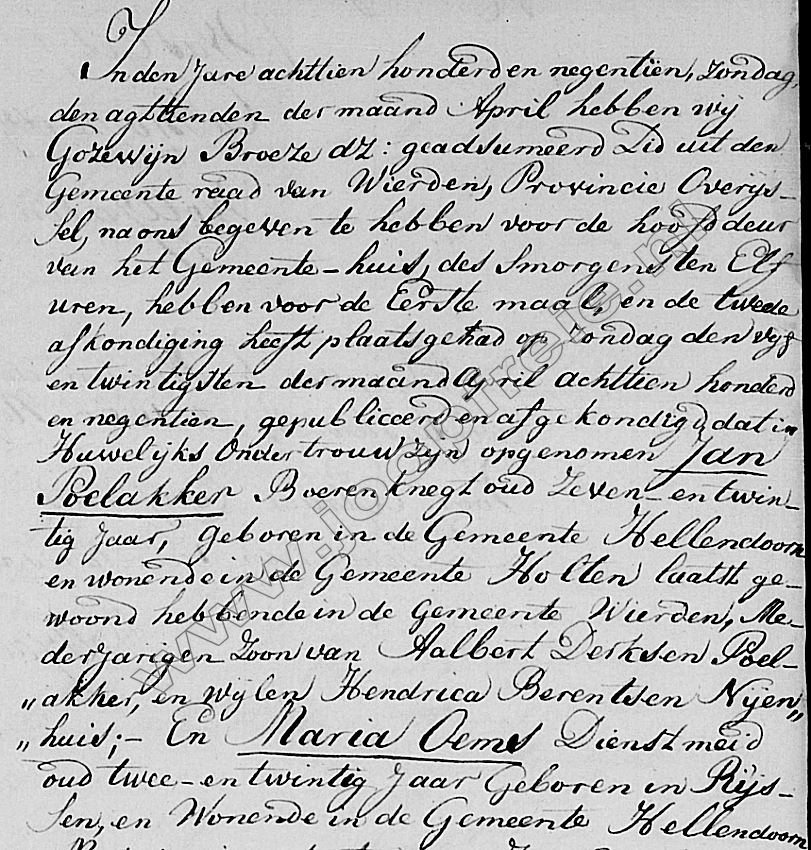 In den Jare achttien honderd en negentien, zondag
den agttienden der maand April hebben wij
Gozewijn Broeze dz: geadsumeerd Lid uit den
Gemeente raad van Wierden, Provincie Overijs-
sel, na ons begeven te hebben voor de hoofd deur
van het Gemeente-huis, des smorgens ten Elf
uren, hebben voor de Eerste maal, en de tweede
afkondiging heeft plaats gehad op zondag den vijf
en twintigsten der maand April achttien honderd
en negentien, gepubliceerd en afgekondigd, dat in
Huwelijks Ondertrouw zijn opgenomen Jan
Poelakker Boeren knegt oud Zeven-en twin-
tig Jaar, geboren in de Gemeente Hellendoorn
en wonende in de Gemeente Holten laatst ge-
woond hebbende in de Gemeente Wierden, Me-
derjarigen Zoon van Aalbert Derksen Poel-
„akker, en wijlen Hendrica Berentsen Nijen„
„huis;- En Maria Oems Dienstmeid
oud twee-en twintig Jaar Geboren in Rijs-
sen, en Wonende in de Gemeente Hellendoorn
www.joopfreie.nl